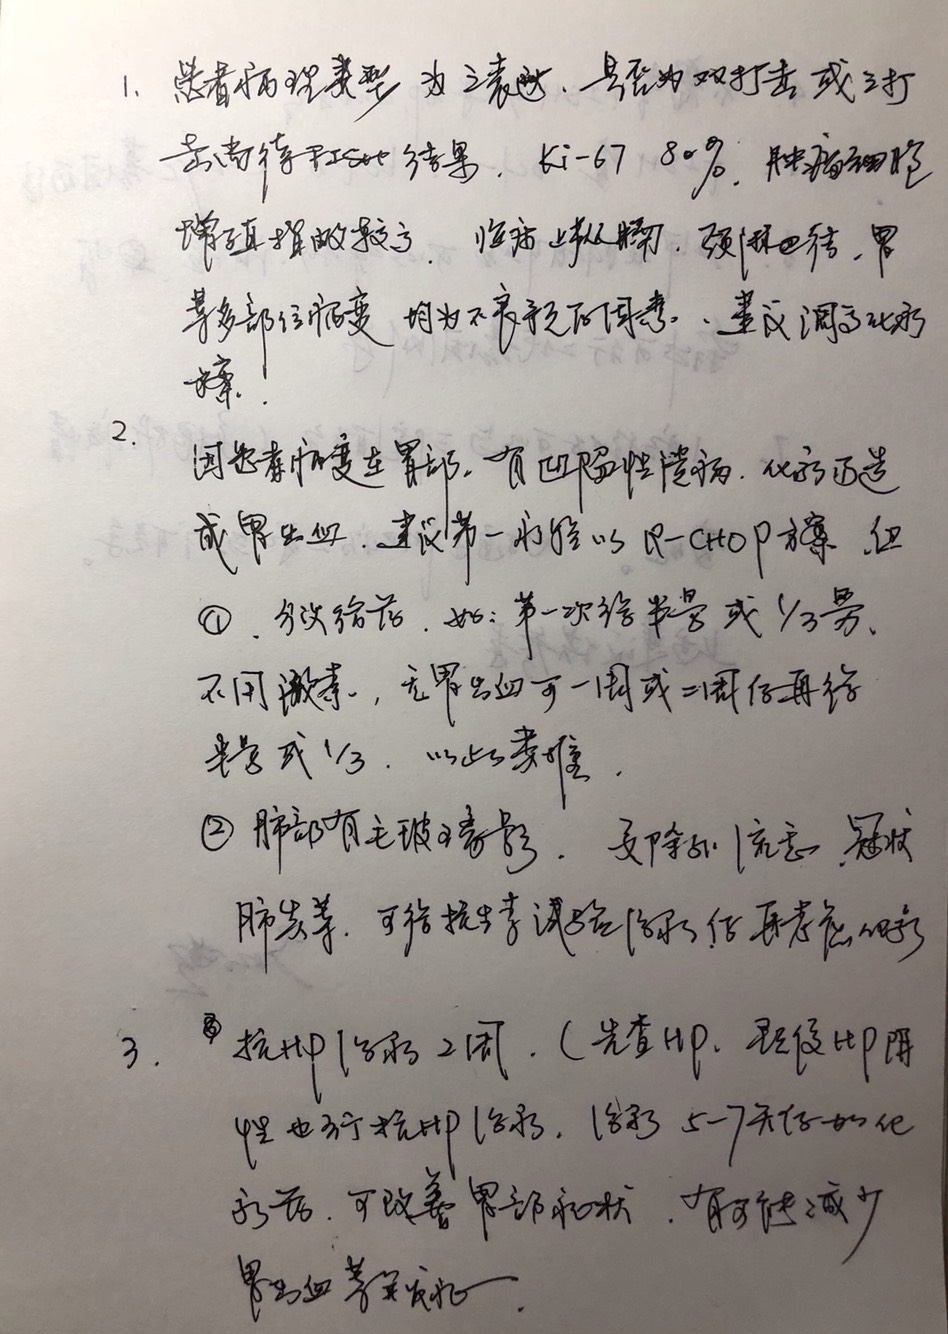 1. 患者病理类型为三表达、是否为双打击或三打
击尚待FISH结果. Ki-67 80%. 肿瘤细胞
增殖指数较高. 临床上扁桃, 颈淋巴结, 胃
等多部位病变 均为不良预后因素. 建议调高化疗
方案.
2. 因患者病变在胃部. 有凹陷性溃疡. 化疗可造
成胃出血. 建议第一疗程以R-CHOP方案 但
①. 分次给药. 如: 第一次给半量或1/3量、
不用激素., 无胃出血可一周或二周后再给
半量或1/3. 以此类推.
② 肺部有毛玻璃影. 要除外流感 冠状
肺炎等. 可给抗生素试验治疗后再考虑化疗
3. 抗HP治疗2周. (先查HP. 即使HP阴
性也可行抗HP治疗. 治疗5-7天后加化
疗药. 可改善胃部症状. 有可能减少
胃出血等并发症.